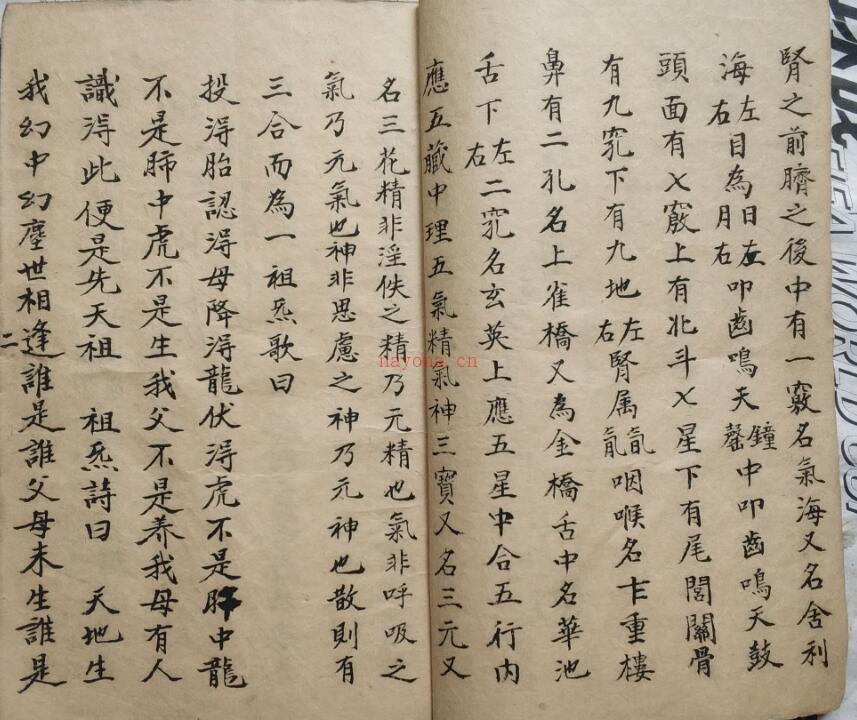 腎之前臍之後中有一竅名氣海又名舍利
海左右目為日月左右叩齒鳴天鐘磬中叩齒鳴天鼓
頭面有七竅上有北斗七星下有尾閭關骨
有九下有九地左右腎属咽喉名十二重樓
鼻有二孔名上雀橋又為金橋舌中名華池
舌下左右二名玄英上應五星中合五行內
應五藏中理五氣精氣神三寶又名三元又
名三花精非淫佚之精乃元精也氣非呼吸之
氣乃元氣也神非思慮之神乃元神也散則有
三合而為一祖炁歌曰
投淂胎認淂母降淂龍伏淂虎不是肝中龍
不是肺中虎不是生我父不是养我母有人
識淂此便是先天祖 祖炁詩曰 天地生
我幻中幻塵世相逢誰是誰父母未生誰是
二
nayoha.cn
WORLD